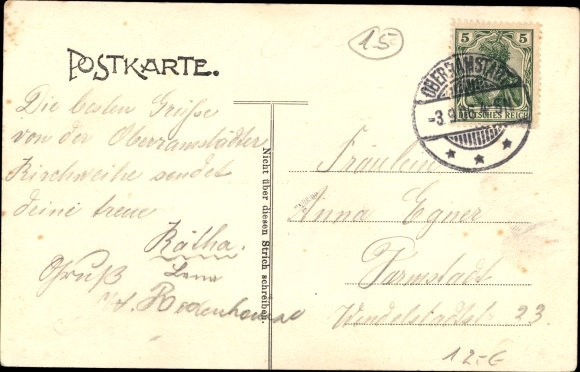 15
POSTKARTE.
5 5
DEUTSCHES REICH
OBERRAMSTADT
-3.9.
Die besten Grüße
von der Oberamstädter
Kirchweihe sendet
deine treue
Kätha.
Gruß Lena
Nicht über diesen Strich schreiben.
Fräulein
Anna Egner
Darmstadt
Wendelstadtstr 23
12-€